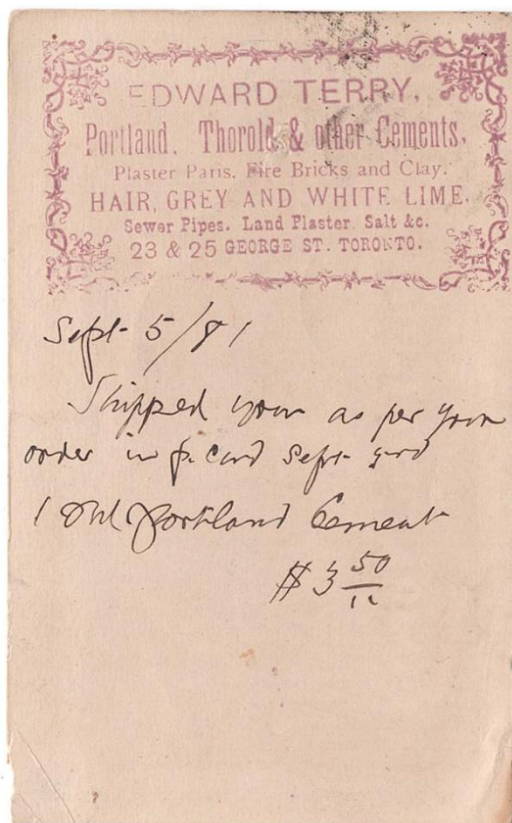 EDWARD TERRY,
Portland, Thorold & other Cements,
Plaster Paris, Fire Bricks and Clay.
HAIR, GREY AND WHITE LIME.
Sewer Pipes. Land Plaster Salt &c.
23 & 25 GEORGE ST. TORONTO.
Sept 5/81
Shipped you as per your
order in p. card Sept 3rd
1 Bbl Portland Cement
$3 50